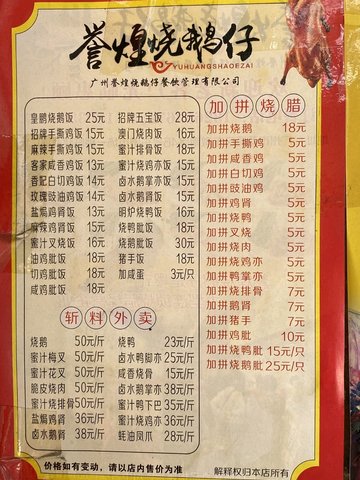 誉煌烧鹅仔
YUHUANGSHAOEZAI
广州誉煌烧鹅仔餐饮管理有限公司
皇鹏烧鹅饭 25元
招牌手撕鸡饭 15元
麻辣手撕鸡饭 15元
客家咸香鸡饭 13元
香妃白切鸡饭 14元
玫瑰豉油鸡饭 14元
盐焗鸡肾饭 13元
麻辣鸡肾饭 15元
蜜汁叉烧饭 16元
油鸡肶饭 18元
切鸡肶饭 18元
咸鸡肶饭 18元
招牌五宝饭 28元
澳门烧肉饭 16元
蜜汁排骨饭 18元
蜜汁烧鸡亦饭 15元
卤水鹅掌亦饭 15元
卤水鹅肾饭 15元
明炉烧鸭饭 16元
烧鸭肶饭 18元
烧鹅肶饭 30元
猪手饭 18元
加咸蛋 3元/只
加拼烧腊
加拼烧鹅 18元
加拼手撕鸡 5元
加拼咸香鸡 5元
加拼白切鸡 5元
加拼豉油鸡 5元
加拼鸡肾 5元
加拼烧鸭 5元
加拼叉烧 5元
加拼烧肉 5元
加拼鸡亦 5元
加拼鸭掌亦 5元
加拼烧排骨 7元
加拼鹅肾 7元
加拼猪手 7元
加拼鸡肶 10元
加拼烧鸭肶 15元/只
加拼烧鹅肶 25元/只
斩料外卖
烧鹅 50元/斤
蜜汁梅叉 50元/斤
蜜汁花叉 50元/斤
脆皮烧肉 50元/斤
蜜汁烧排骨 50元/斤
盐焗鸡肾 38元/斤
卤水鹅肾 38元/斤
烧鸭 23元/斤
卤水鸭脚亦 25元/斤
咸香烧骨 15元/斤
卤水鹅掌亦 38元/斤
蜜汁鸭下巴 35元/斤
蜜汁烧鸡亦 38元/斤
蚝油凤爪 28元/斤
价格如有变动，请以店内售价为准
解释权归本店所有